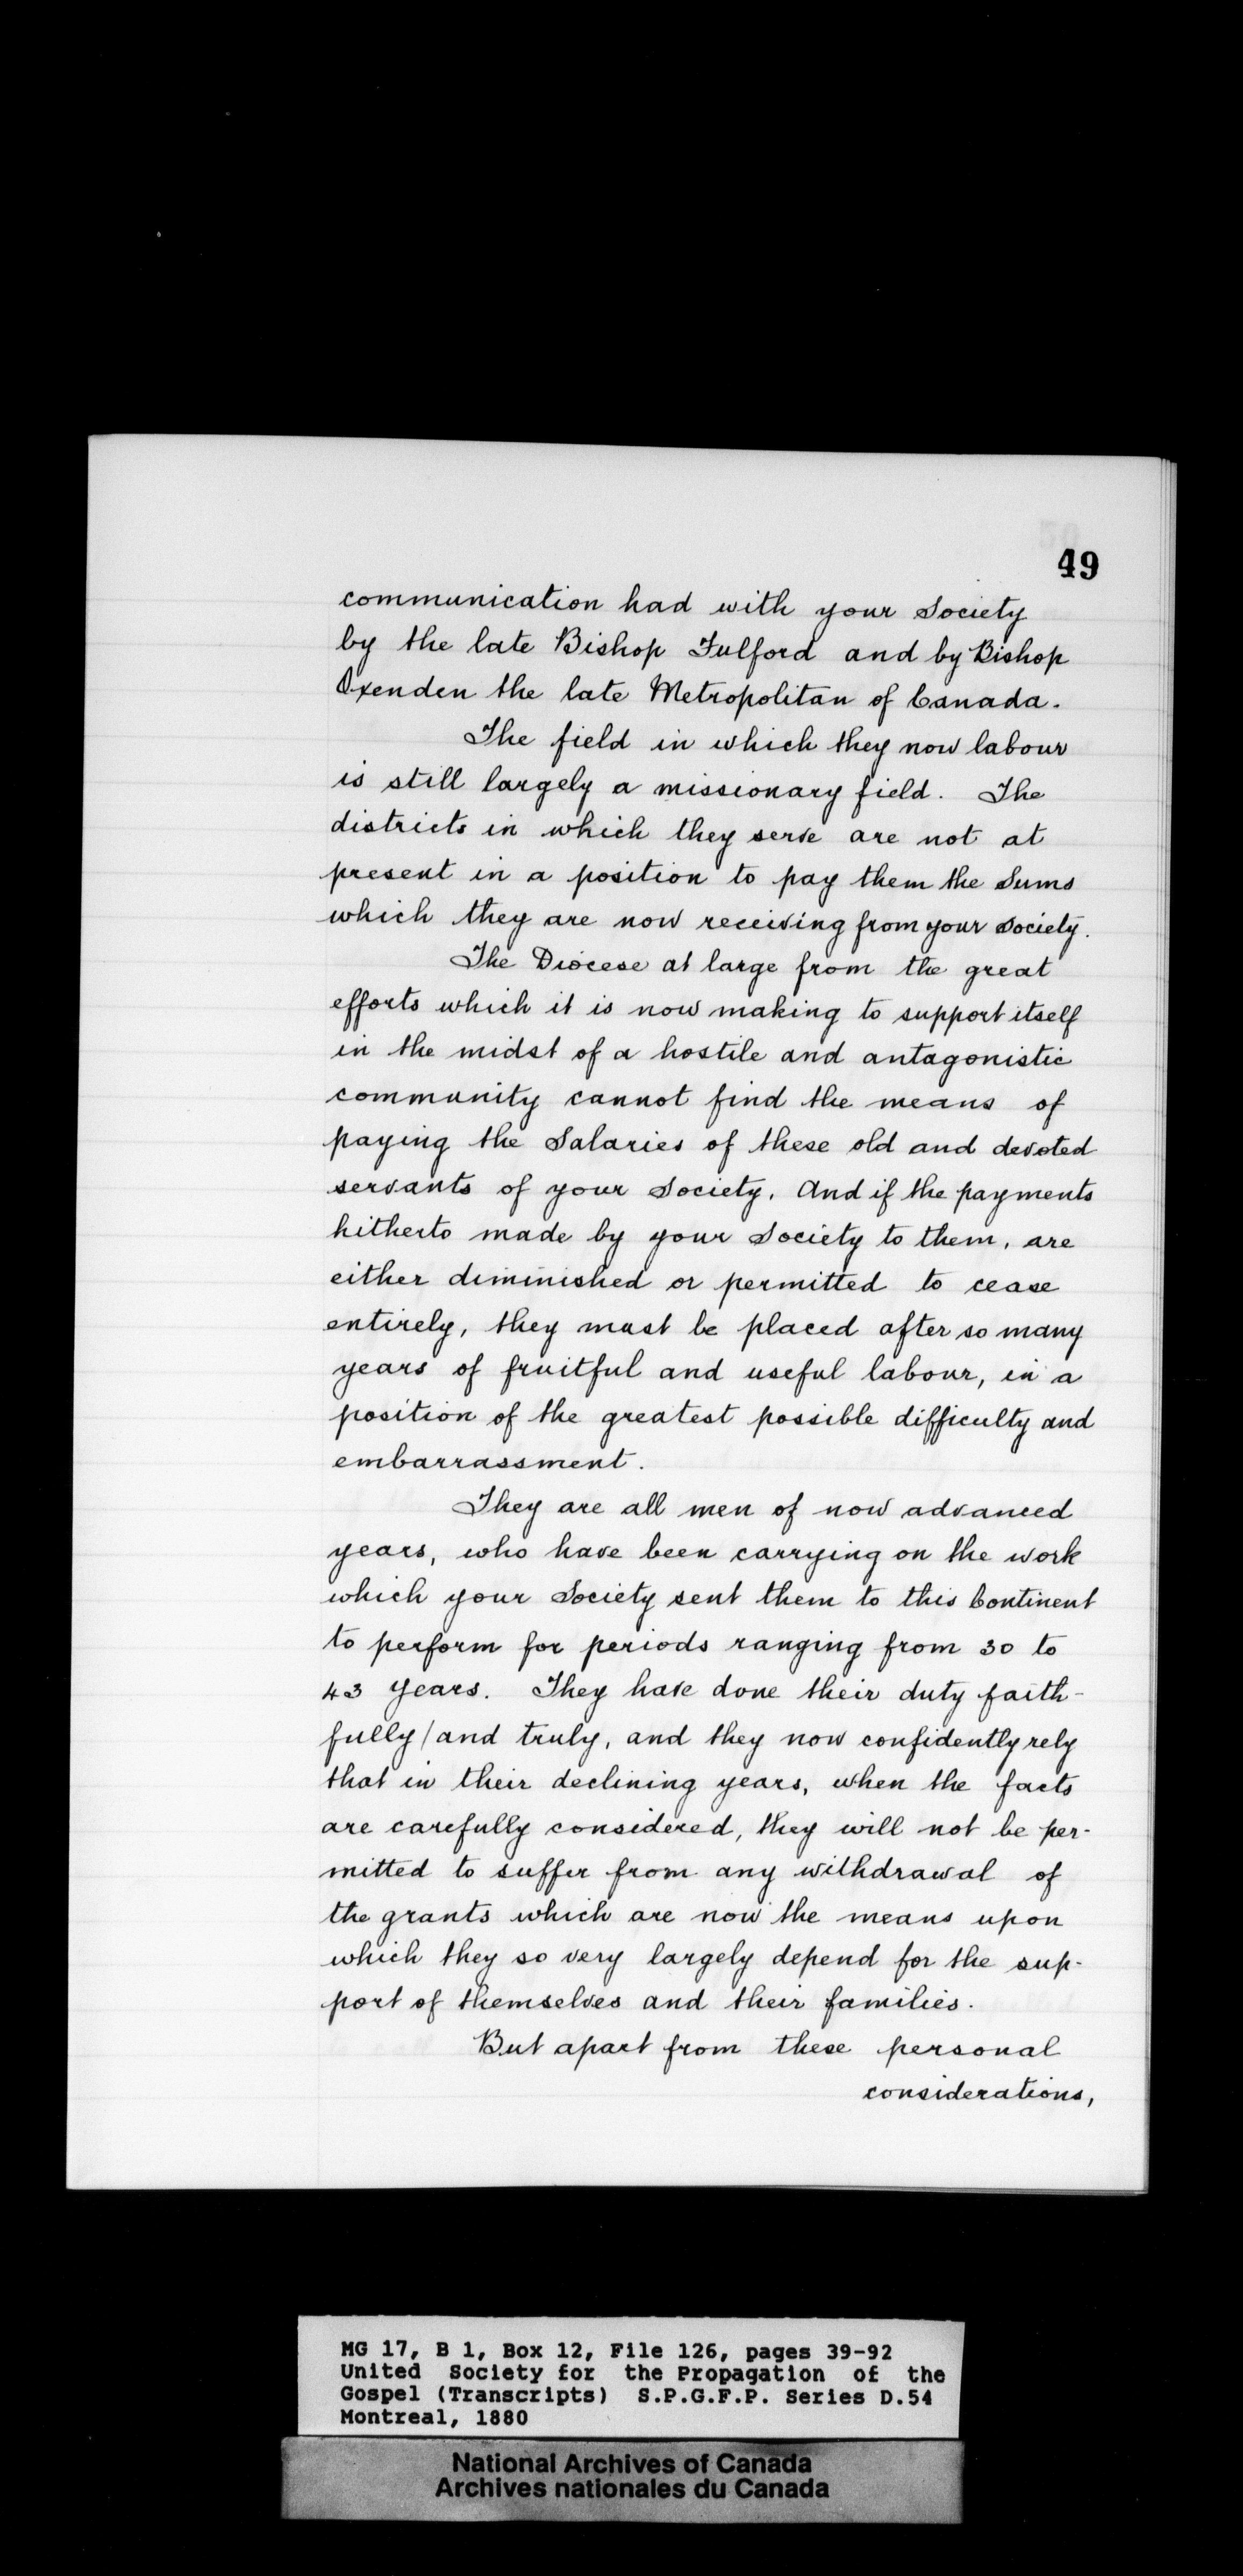 49
communication had with your Society
by the late Bishop Fulford and by Bishop
Oxenden the late Metropolitan of Canada.
The field in which they now labour
is still largely a missionary field. The
districts in which they serve are not at
present in a position to pay them the Sums
which they are now receiving from your Society.
The Diocese at large from the great
efforts which it is now making to support itself
in the midst of a hostile and antagonistic
community cannot find the means of
paying the Salaries of these old and devoted
servants of your Society. And if the payments
hitherto made by your Society to them, are
either diminished or permitted to cease
entirely, they must be placed after so many
years of fruitful and useful labour, in a
position of the greatest possible difficulty and
embarrassment.
They are all men of now advanced
years, who have been carrying on the work
which your Society sent them to this Continent
to perform for periods ranging from 30 to
43 years. They have done their duty faith-
fully/and truly, and they now confidently rely
that in their declining years, when the facts
are carefully considered, they will not be per-
mitted to suffer from any withdrawal of
the grants which are now the means upon
which they so very largely depend for the sup-
port of themselves and their families.
But apart from these personal
considerations,
MG 17, B 1, Box 12, File 126, pages 39-92
United Society for the Propagation of the
Gospel (Transcripts) S.P.G.F.P. Series D.54
Montreal, 1880
National Archives of Canada
Archives nationales du Canada